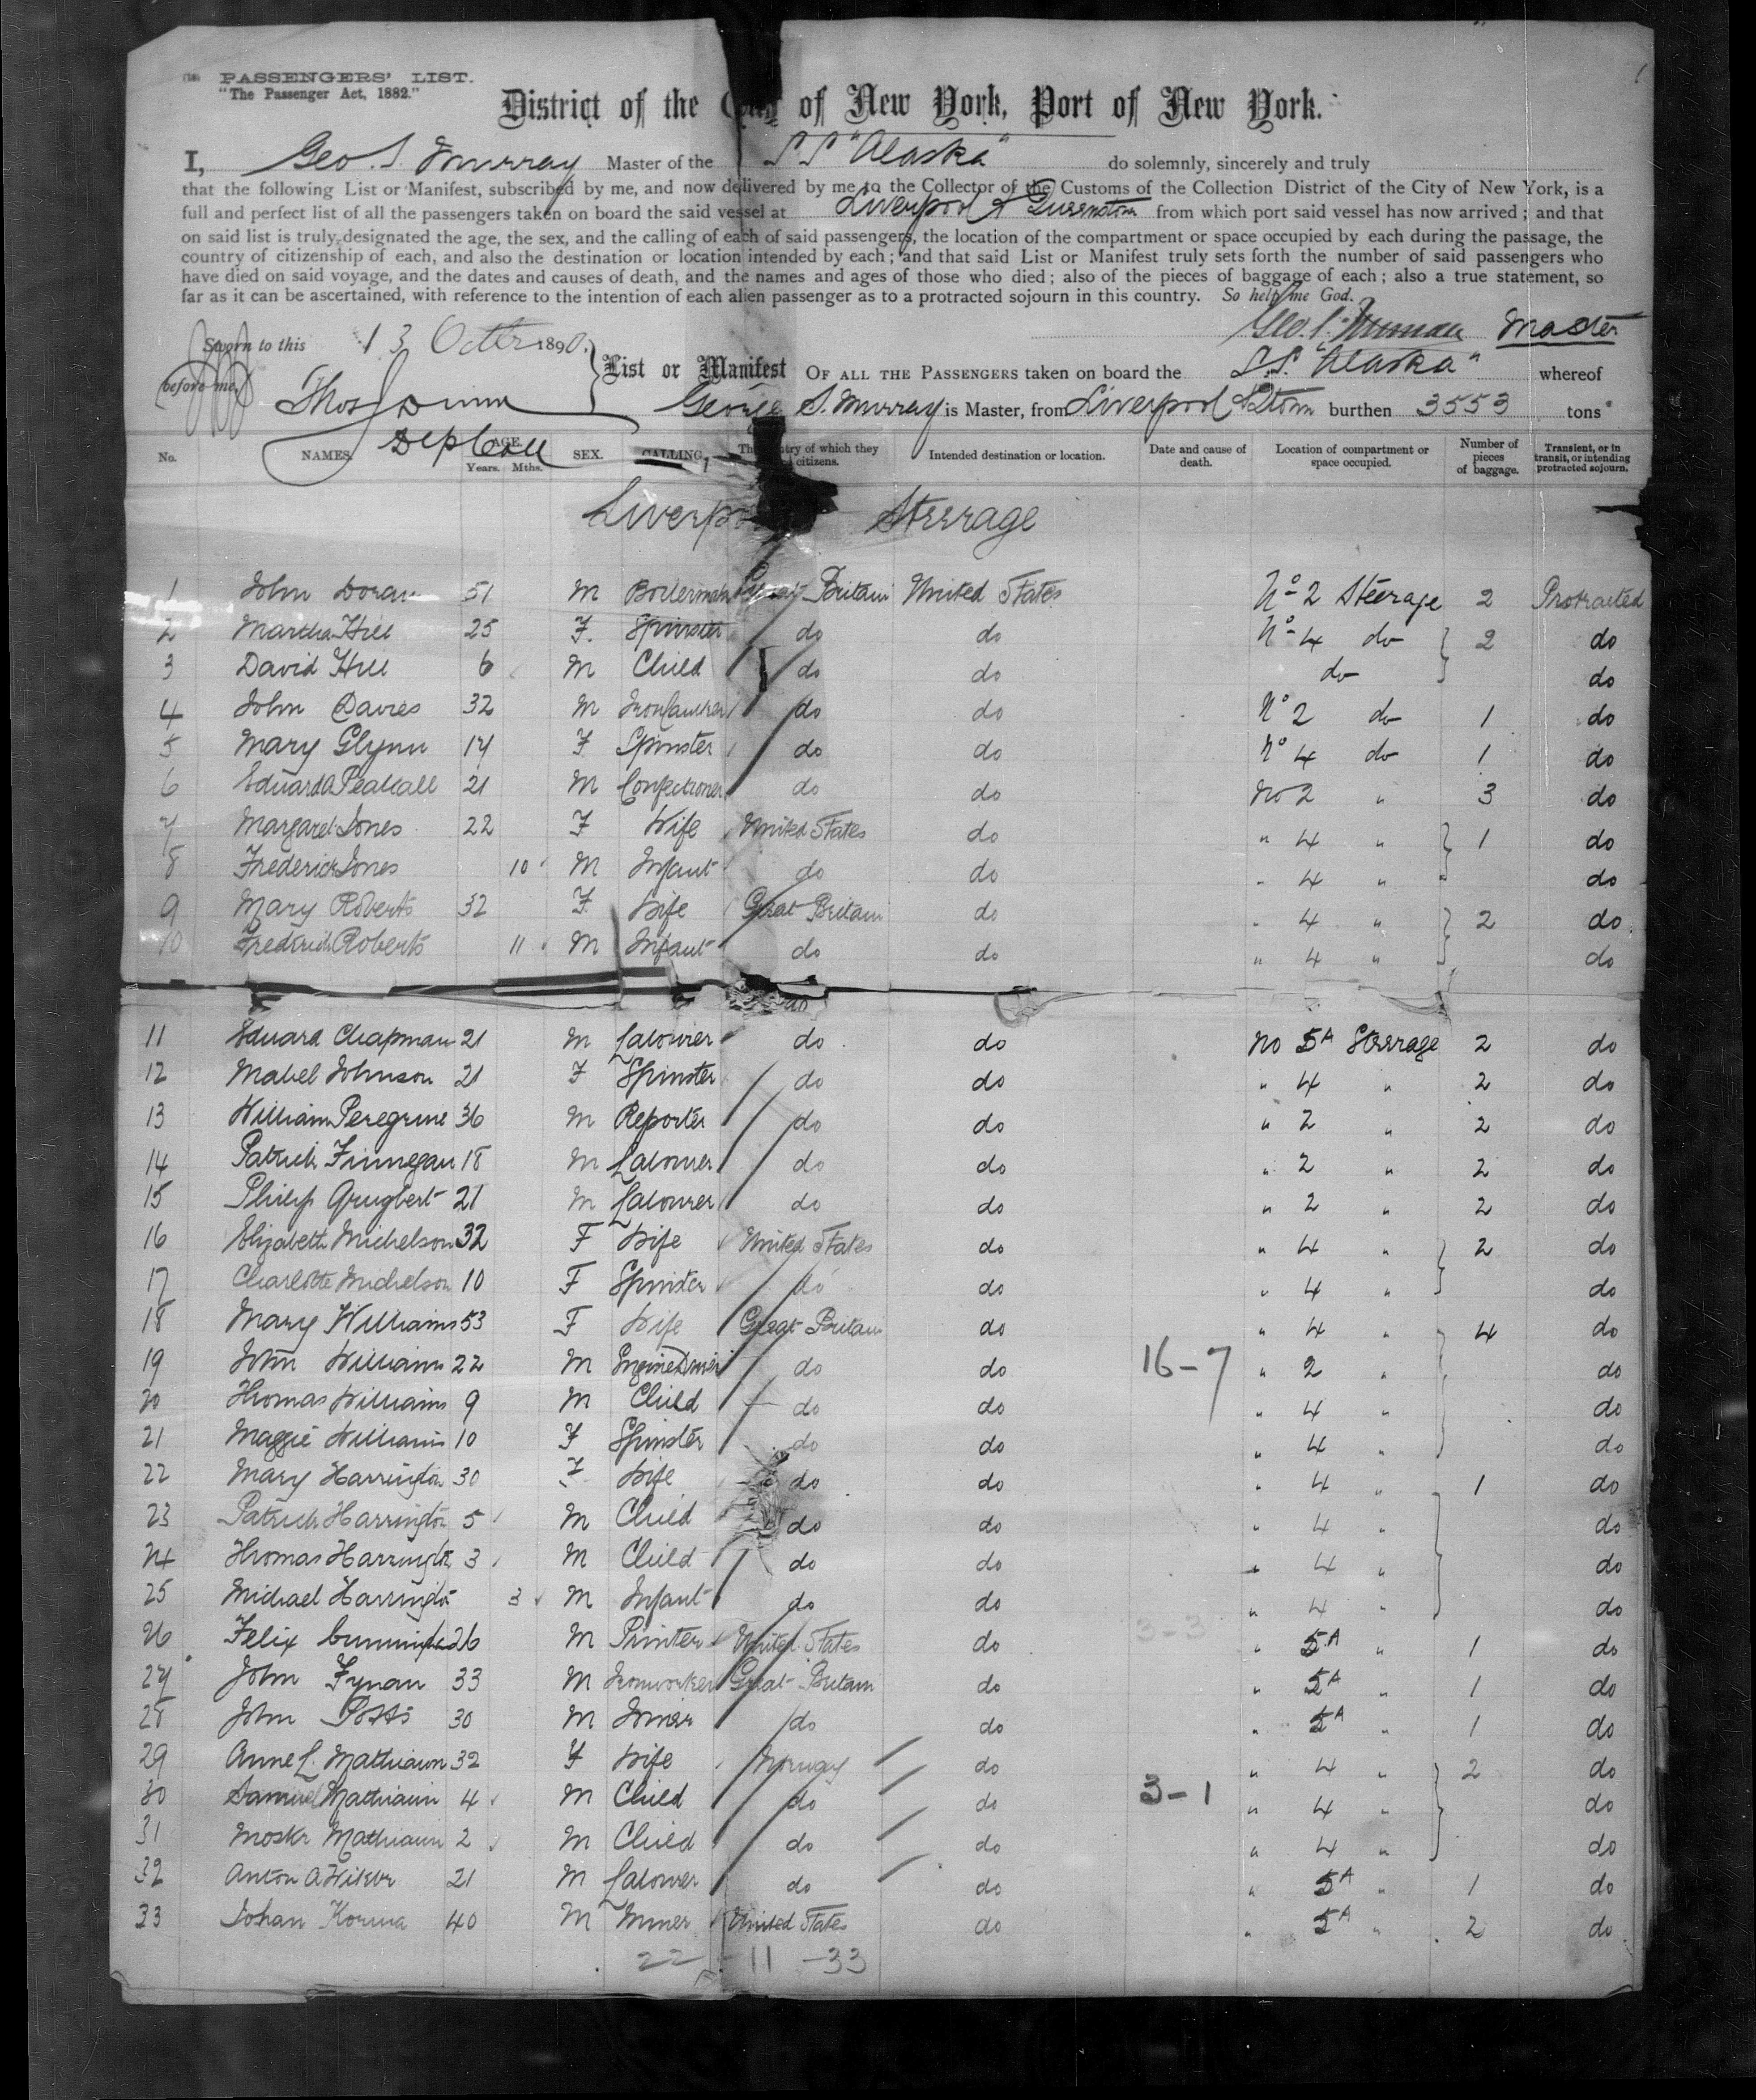 (18) PASSENGERS' LIST.
"The Passenger Act, 1882."
District of the City of New York, Port of New York.
I, Geo. S. Murray Master of the S S "Alaska" do solemnly, sincerely and truly
that the following List or Manifest, subscribed by me, and now delivered by me to the Collector of the Customs of the Collection District of the City of New York, is a
full and perfect list of all the passengers taken on board the said vessel at Liverpool & Queenstown from which port said vessel has now arrived; and that
on said list is truly designated the age, the sex, and the calling of each of said passengers, the location of the compartment or space occupied by each during the passage, the
country of citizenship of each, and also the destination or location intended by each; and that said List or Manifest truly sets forth the number of said passengers who
have died on said voyage, and the dates and causes of death, and the names and ages of those who died; also of the pieces of baggage of each; also a true statement, so
far as it can be ascertained, with reference to the intention of each alien passenger as to a protracted sojourn in this country. So help me God.
Geo. S. Murray Master
Sworn to this 13 Octber 1890.
before me, Thos Dunn
Dep Coll
List or Manifest OF ALL THE PASSENGERS taken on board the S.S. "Alaska" whereof
George S. Murray is Master, from Liverpool & Qtown burthen 3553 tons
No. NAMES. AGE. Years. Mths. SEX. CALLING. The country of which they are citizens. Intended destination or location. Date and cause of death. Location of compartment or space occupied. Number of pieces of baggage. Transient, or in transit, or intending protracted sojourn.
Liverpool Steerage
1 John Doran 51 M Boilerman Great Britain United States No 2 Steerage 2 Protracted
2 Martha Hill 25 F. Spinster do do No 4 do 2 do
3 David Hill 6 M Child do do do do
4 John Davies 32 M do do No 2 do 1 do
5 Mary Glynn 14 F Spinster do do No 4 do 1 do
6 Edward 21 M Confectioner do do No 2 " 3 do
7 Margaret Jones 22 F Wife United States do " 4 " 1 do
8 Frederick Jones 10 M Infant do do " 4 " " do
9 Mary Roberts 32 F Wife Great Britain do " 4 " 2 do
10 Frederick Roberts 11 M Infant do do " 4 " do
11 Edward Chapman 21 M Labourer do do No 5A Steerage 2 do
12 Mabel Johnson 21 F Spinster do do " 4 " 2 do
13 William Peregrine 36 M Reporter do do " 2 " 2 do
14 Patrick Finnegan 18 M Labourer do do " 2 " 2 do
15 Philip 21 M Labourer do do " 2 " 2 do
16 Elizabeth Michelson 32 F Wife United States do " 4 " 2 do
17 Charlotte Michelson 10 F Spinster do do " 4 " do
18 Mary Williams 53 F Wife Great Britain do " 4 " 4 do
19 John Williams 22 M Engine Driver do do 16-7 " 2 " do
20 Thomas Williams 9 M Child do do " 4 " do
21 Maggie Williams 10 F Spinster do do " 4 " do
22 Mary Harrington 30 F Wife do do " 4 " 1 do
23 Patrick Harrington 5 M Child do do " 4 " do
24 Thomas Harrington 3 M Child do do " 4 " do
25 Michael Harrington 3 M Infant do do " 4 " do
26 Felix 26 M Printer United States do 3-3 " 5A " 1 do
27 John Fynan 33 M Ironworker Great Britain do " 5A " 1 do
28 John Potts 30 M Joiner do do " 5A " 1 do
29 Anne L. Mathiasen 32 F Wife Norway do " 4 " 2 do
30 Samuel Mathiasen 4 M Child do do 3-1 " 4 " do
31 Mathiasen 2 M Child do do " 4 " do
32 Anton A 21 M Labourer do do " 5A " 1 do
33 Johan 40 M Miner United States do " 5A " 2 do
22 - 11 - 33